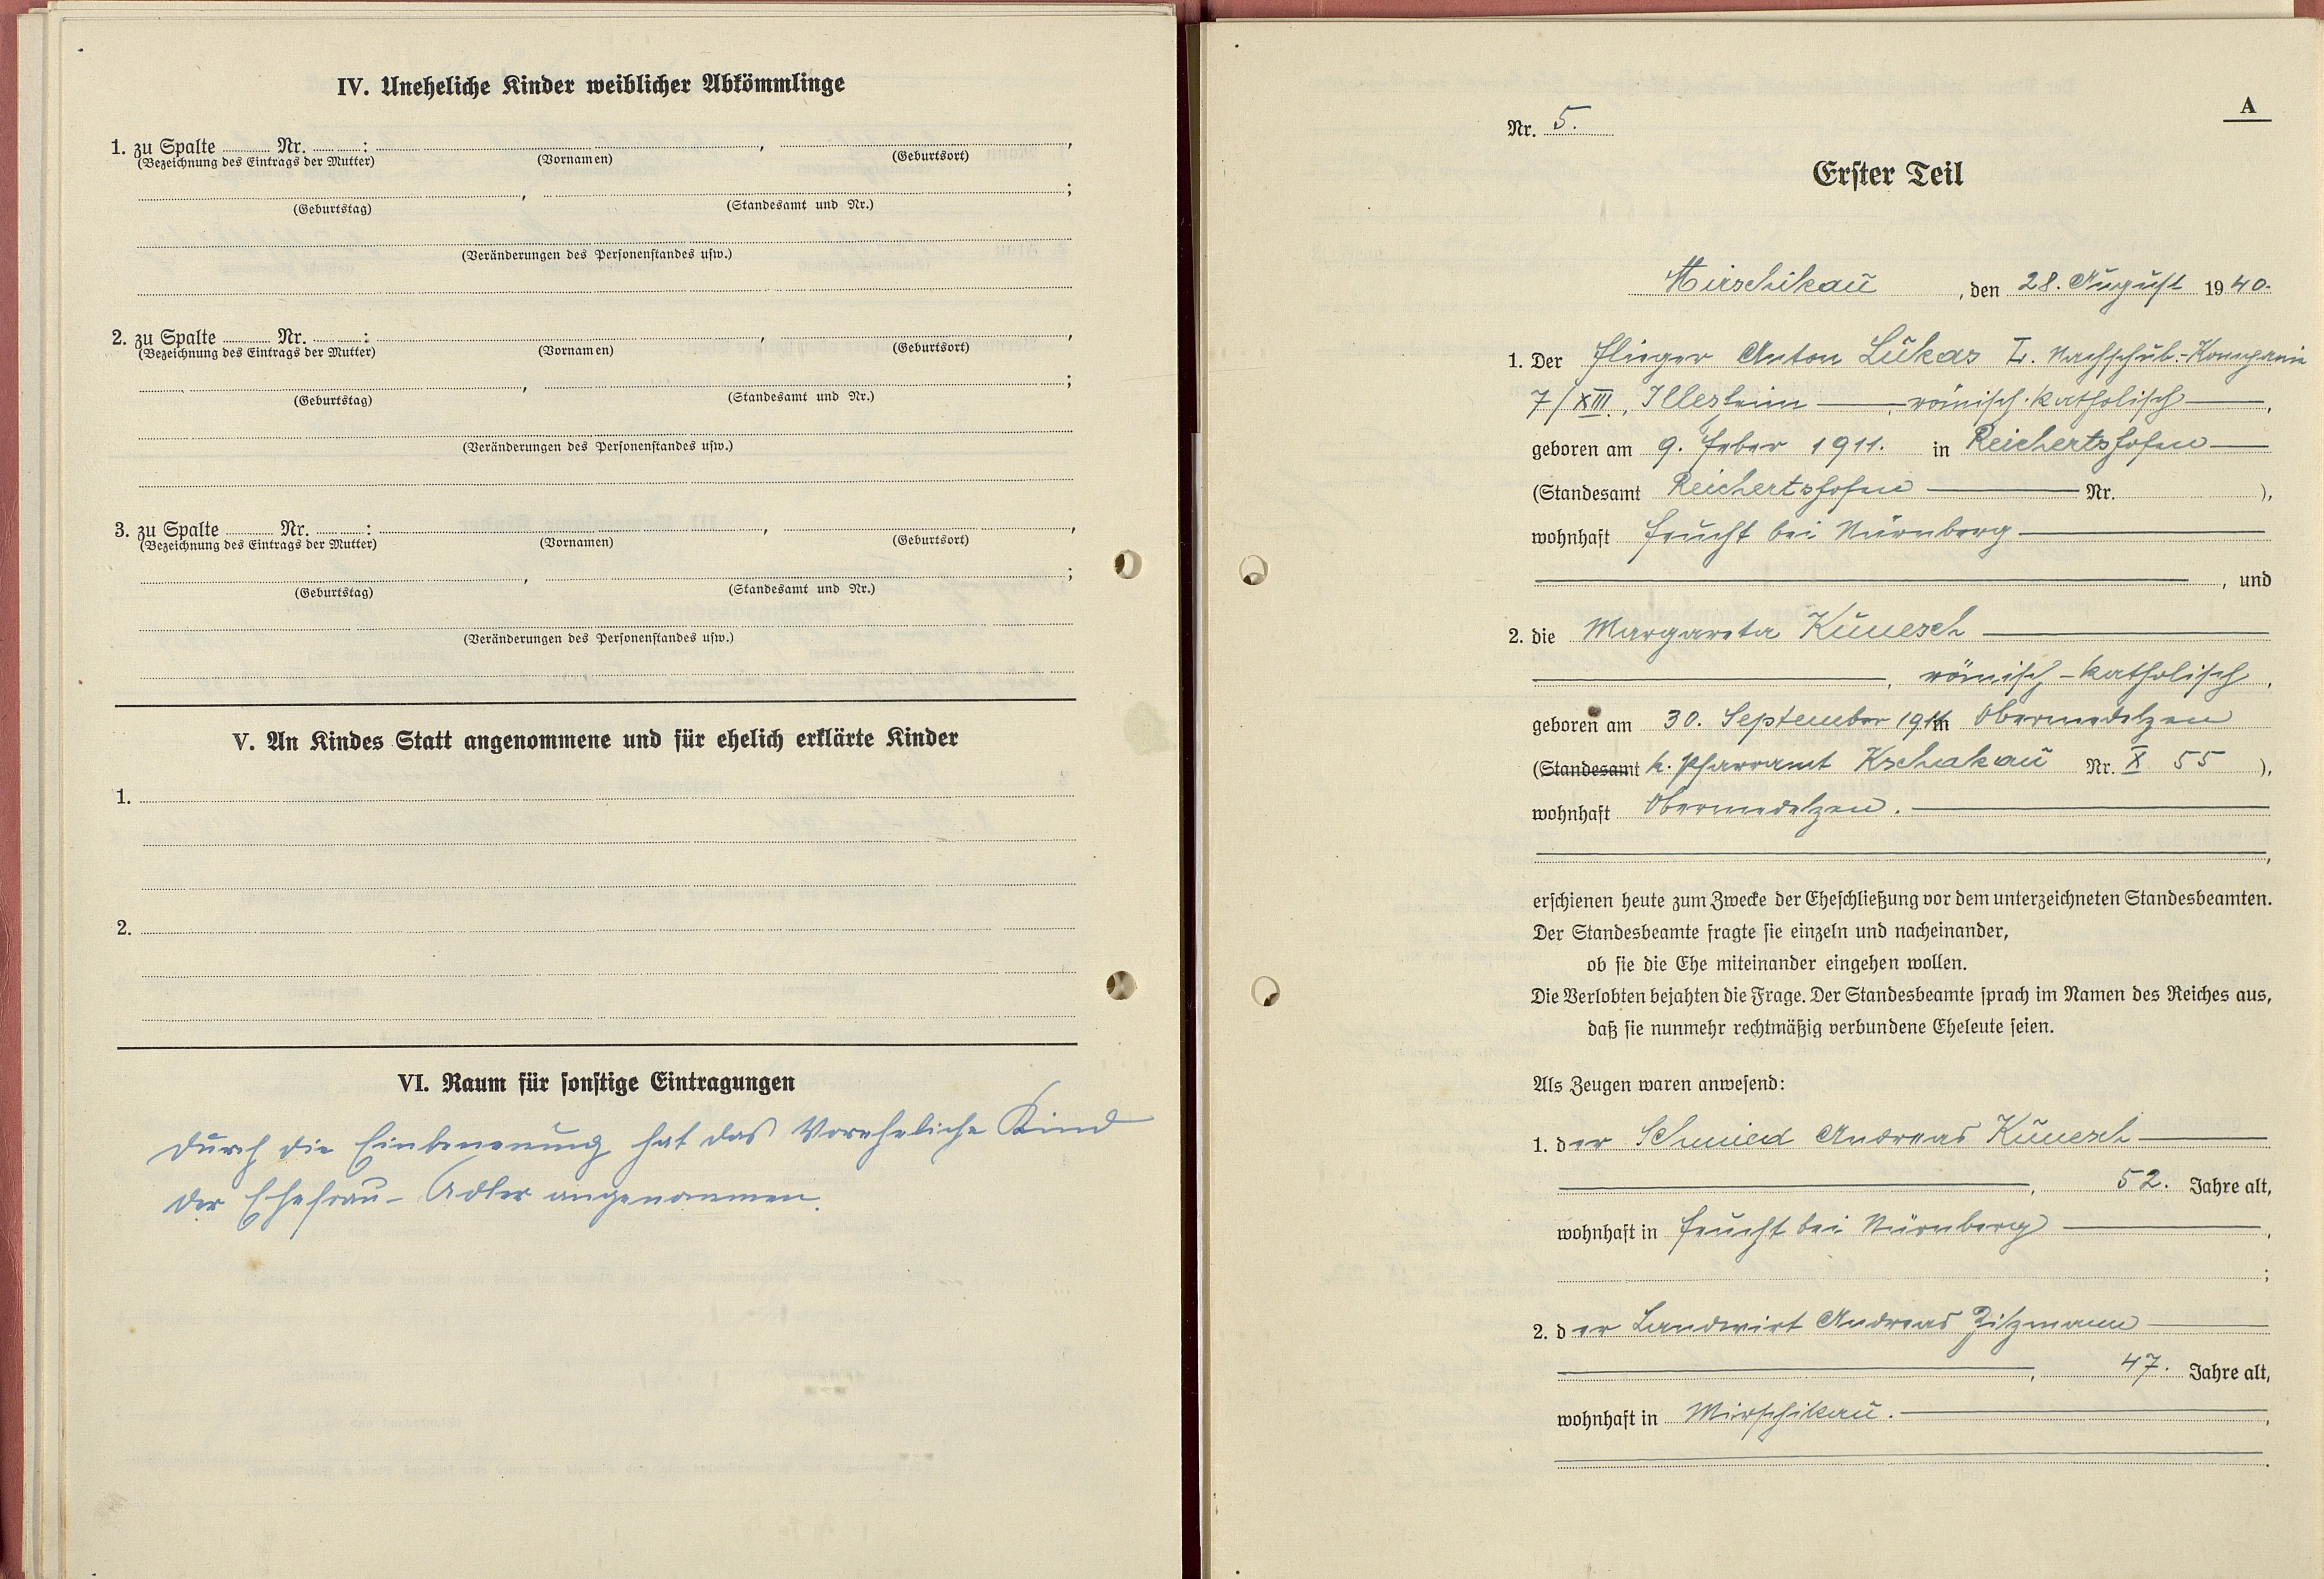 IV. Uneheliche Kinder weiblicher Abkömmlinge
1. zu Spalte Nr. : , ,
(Bezeichnung des Eintrags der Mutter) (Vornamen) (Geburtsort)
, ;
(Geburtstag) (Standesamt und Nr.)
(Veränderungen des Personenstandes usw.)
2. zu Spalte Nr. : , ,
(Bezeichnung des Eintrags der Mutter) (Vornamen) (Geburtsort)
, ;
(Geburtstag) (Standesamt und Nr.)
(Veränderungen des Personenstandes usw.)
3. zu Spalte Nr. : , ,
(Bezeichnung des Eintrags der Mutter) (Vornamen) (Geburtsort)
, ;
(Geburtstag) (Standesamt und Nr.)
(Veränderungen des Personenstandes usw.)
V. An Kindes Statt angenommene und für ehelich erklärte Kinder
1.
2.
VI. Raum für sonstige Eintragungen
Durch die Einbenennung hat das Voreheliche Kind
der Ehefrau - Adler angenommen.
A
Nr. 5.
Erster Teil
Mirschikau, den 28. August 1940.
1. Der Flieger Anton Lukas L. Nachschub.-Kompanie
7/XIII, Illesheim, römisch-katholisch,
geboren am 9. Feber 1911. in Reichertshofen
(Standesamt Reichertshofen Nr. ),
wohnhaft Feucht bei Nürnberg
, und
2. die Margareta Kunesch
, römisch-katholisch,
geboren am 30. September 1911 in Obermedelzen
(Standesamt k. Pfarramt Kschakau Nr. X 55 ),
wohnhaft Obermedelzen.
,
erschienen heute zum Zwecke der Eheschließung vor dem unterzeichneten Standesbeamten.
Der Standesbeamte fragte sie einzeln und nacheinander,
ob sie die Ehe miteinander eingehen wollen.
Die Verlobten bejahten die Frage. Der Standesbeamte sprach im Namen des Reiches aus,
daß sie nunmehr rechtmäßig verbundene Eheleute seien.
Als Zeugen waren anwesend:
1. der Schmied Andreas Kunesch
, 52. Jahre alt,
wohnhaft in Feucht bei Nürnberg,
;
2. der Landwirt Andreas Zitzmann
, 47. Jahre alt,
wohnhaft in Mirschikau.,
.